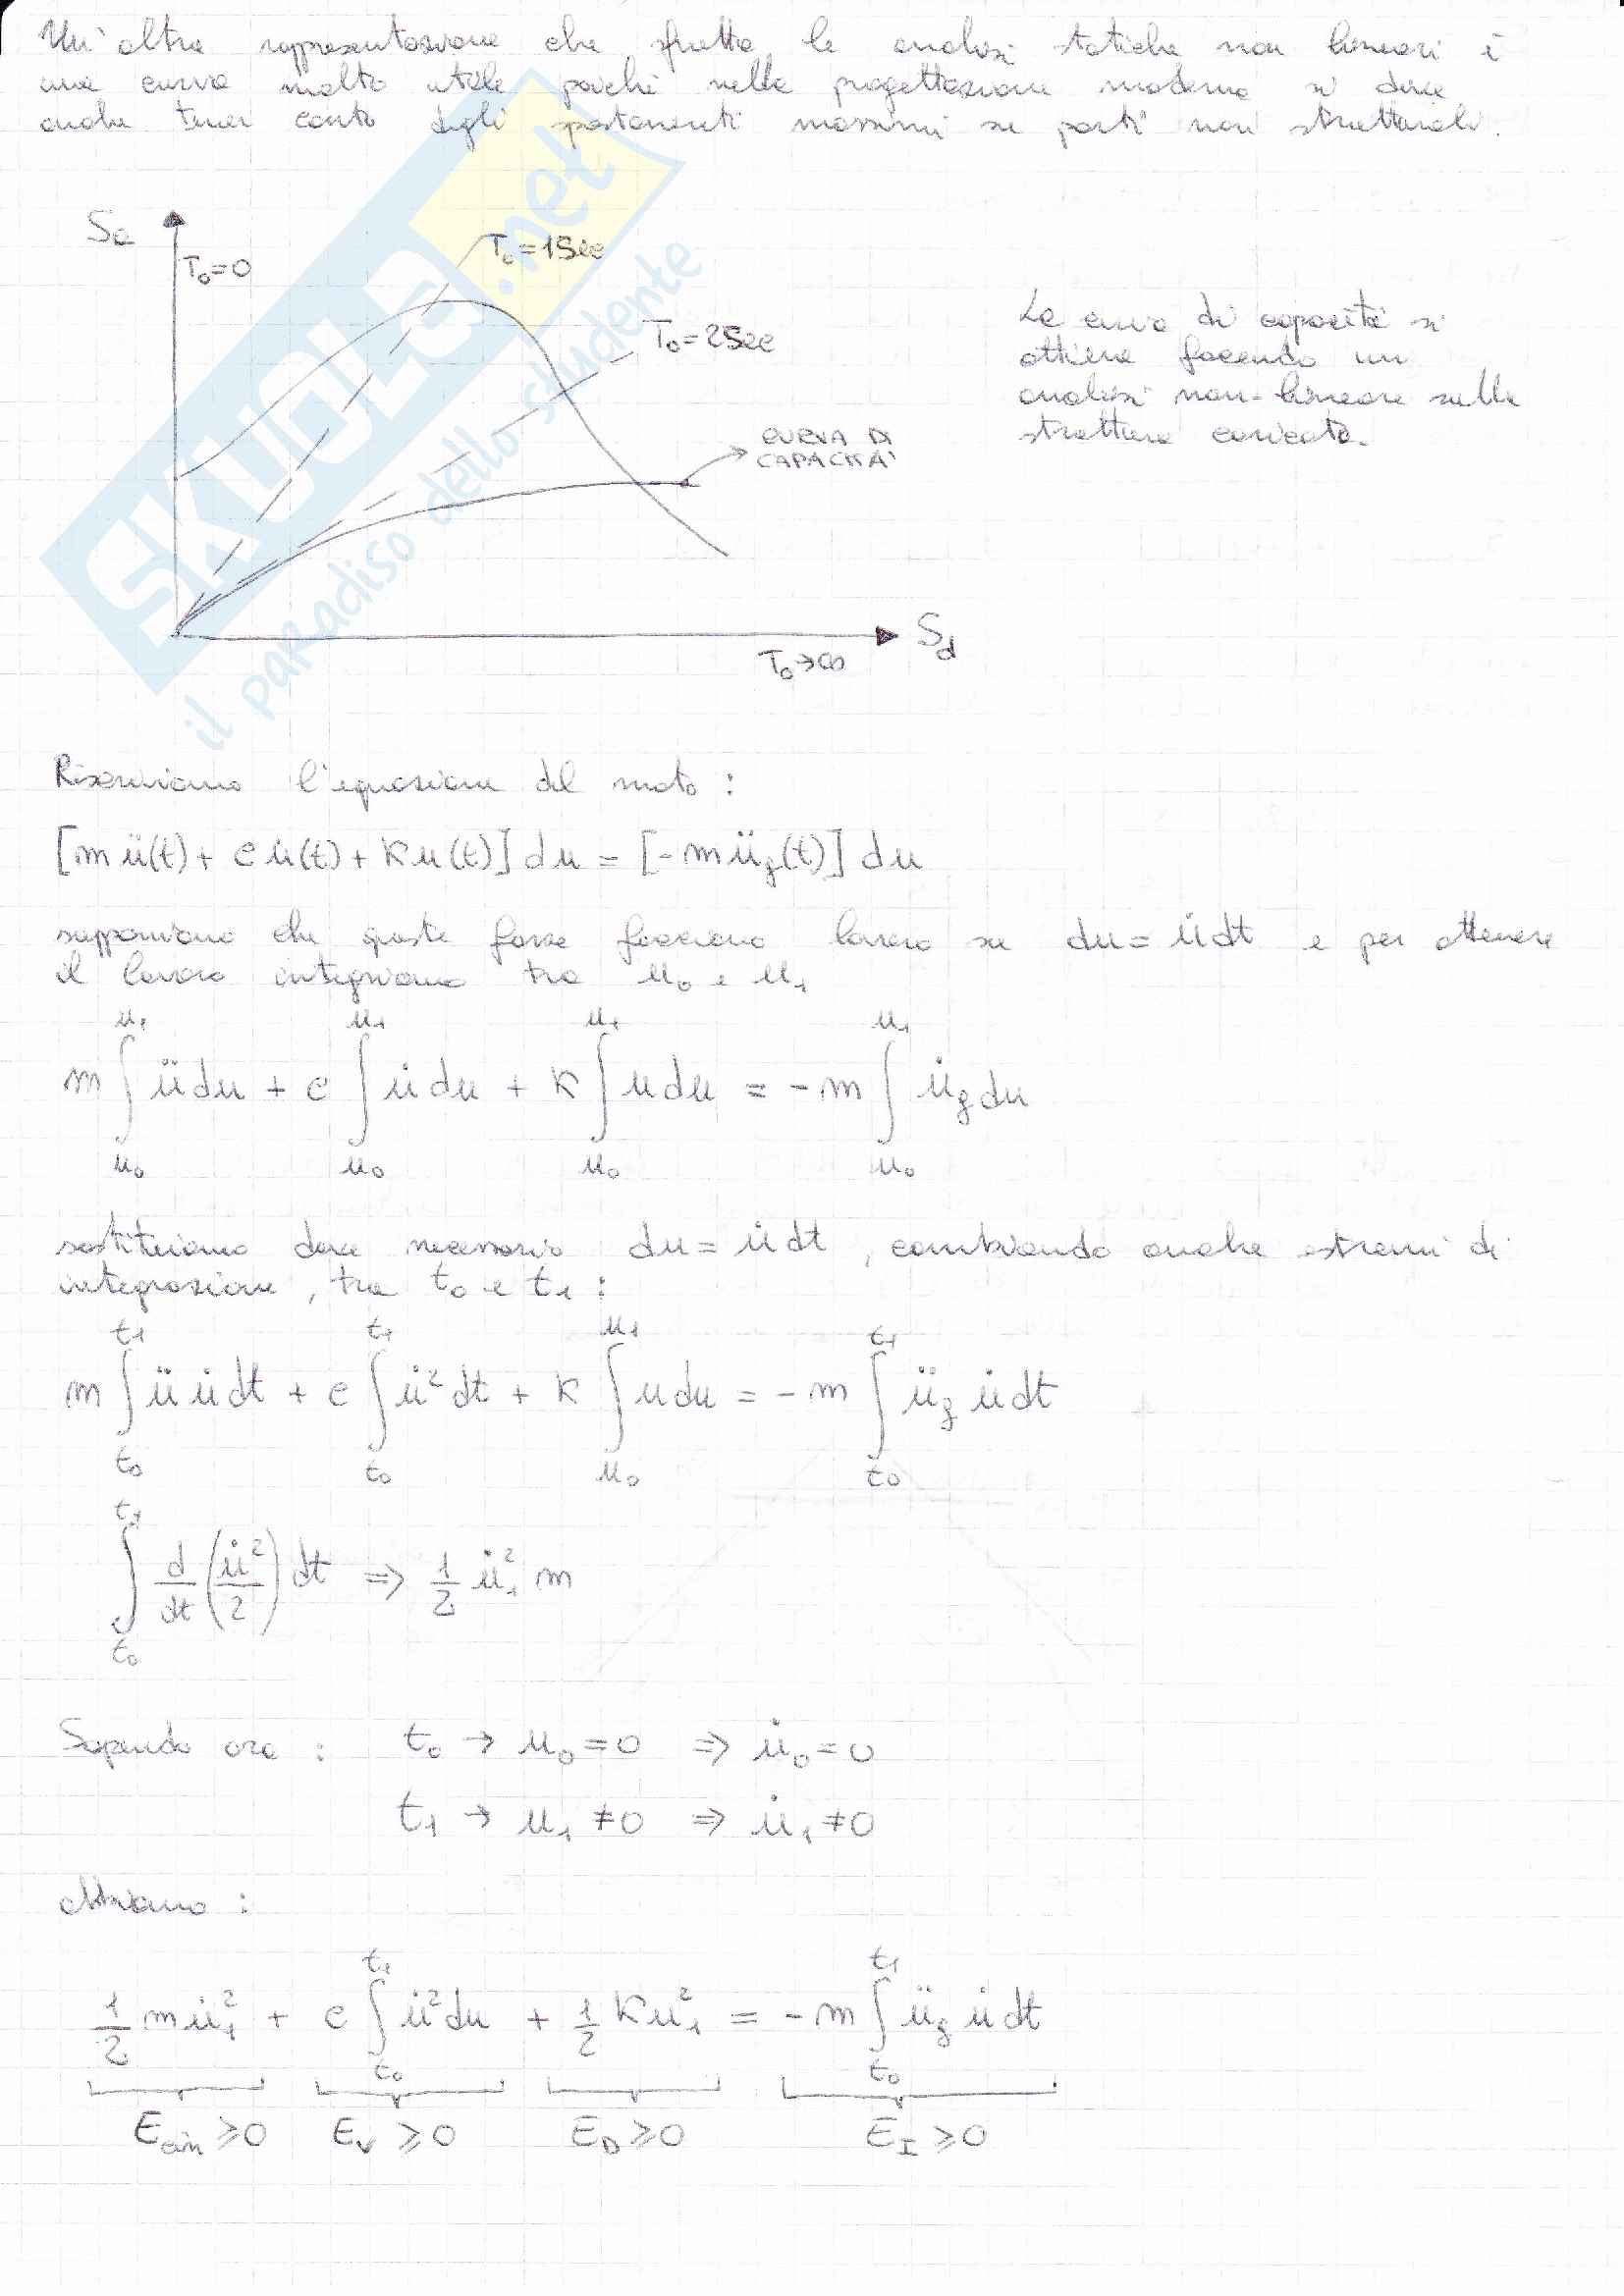 Un'altra rappresentazione che sfrutta le analisi statiche non lineari è
una curva molto utile poiché nella progettazione moderna si deve
anche tener conto degli spostamenti massimi su parti non strutturali.
Sa
T₀=0
T₀=1Sec
T₀=2Sec
CURVA DI
CAPACITA'
T₀→∞
Sd
La curva di capacità si
ottiene facendo un
analisi non-lineare sulla
struttura caricata.
SKUOLA.net
il paradiso dello studente
Riscriviamo l'equazione del moto :
[mü(t) + cu̇(t) + ku(t)] du = [-mü_g(t)] du
supponiamo che queste forze facciano lavoro su du = u̇dt e per ottenere
il lavoro integriamo tra u₀ e u₁
m ∫_{u₀}^{u₁} ü du + c ∫_{u₀}^{u₁} u̇ du + k ∫_{u₀}^{u₁} u du = -m ∫_{u₀}^{u₁} ü_g du
sostituiamo dove necessario du = u̇dt , cambiando anche estremi di
integrazione, tra t₀ e t₁ :
m ∫_{t₀}^{t₁} ü u̇ dt + c ∫_{t₀}^{t₁} u̇² dt + k ∫_{u₀}^{u₁} u du = -m ∫_{t₀}^{t₁} ü_g u̇ dt
∫_{t₀}^{t₁} d/dt (u̇²/2) dt ⇒ 1/2 u̇₁² m
Sapendo ora : t₀ → u₀ = 0 ⇒ u̇₀ = 0
t₁ → u₁ ≠ 0 ⇒ u̇₁ ≠ 0
abbiamo :
1/2 m u̇₁² + c ∫_{t₀}^{t₁} u̇² du + 1/2 k u₁² = -m ∫_{t₀}^{t₁} ü_g u̇ dt
E_cin ≥ 0 E_v ≥ 0 E_D ≥ 0 E_I ≥ 0